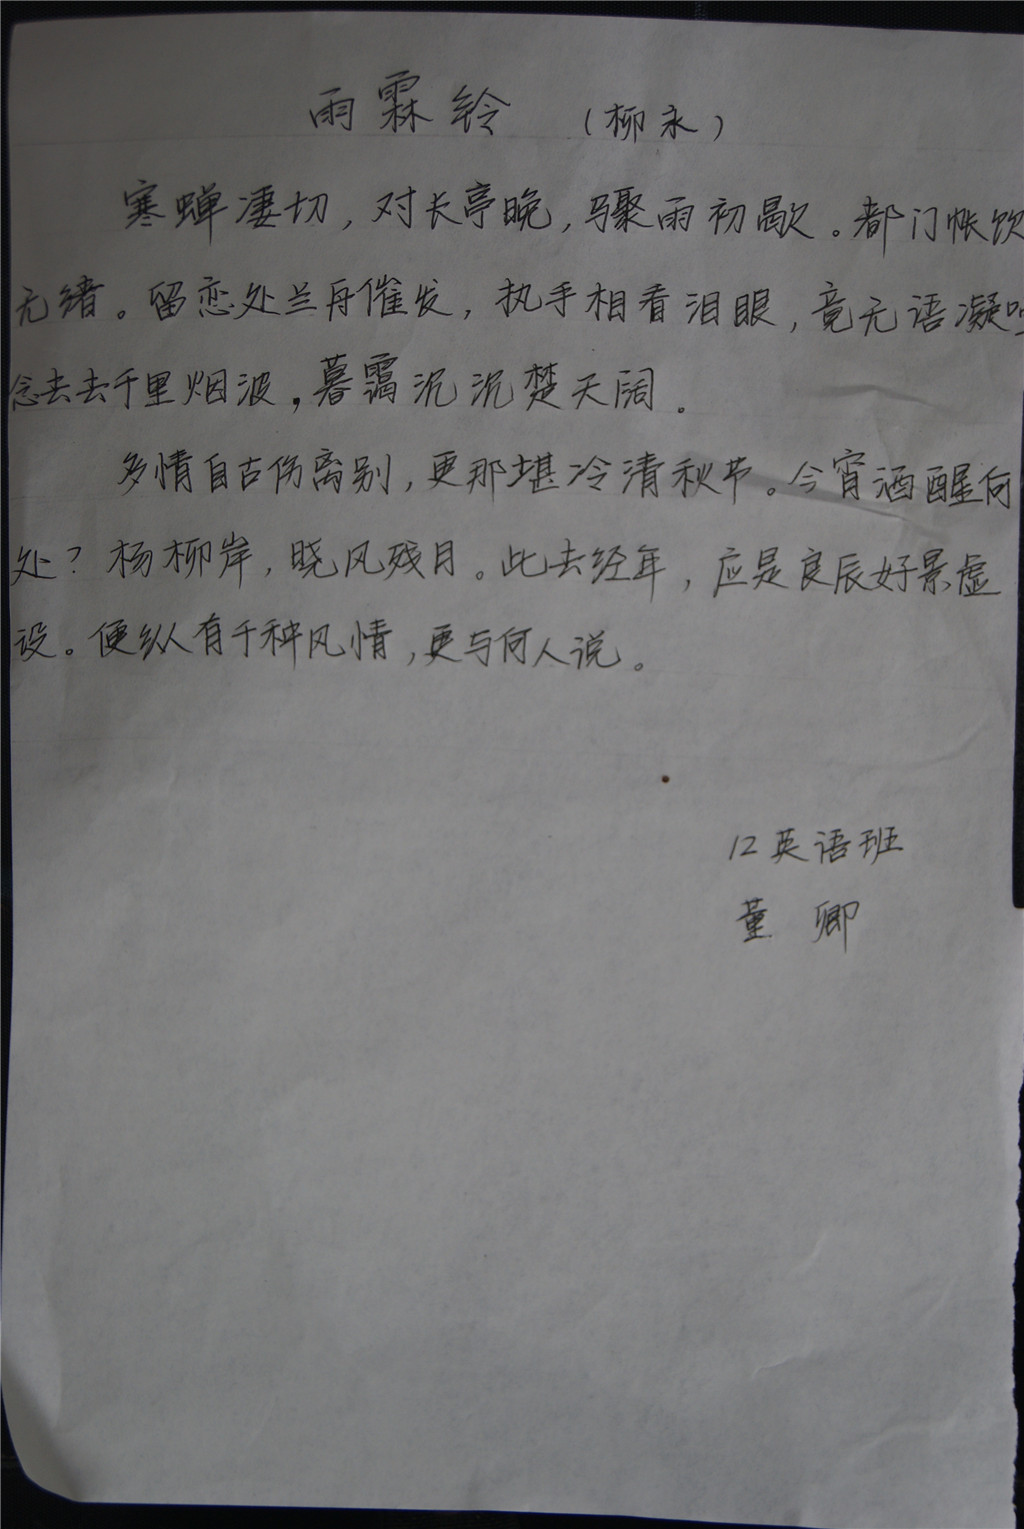 雨霖铃 (柳永)
寒蝉凄切,对长亭晚,骤雨初歇。都门帐饮
无绪。留恋处兰舟催发,执手相看泪眼,竟无语凝噎
念去去千里烟波,暮霭沉沉楚天阔。
多情自古伤离别,更那堪冷清秋节。今宵酒醒何
处?杨柳岸,晓风残月。此去经年,应是良辰好景虚
设。便纵有千种风情,更与何人说。
12英语班
董卿